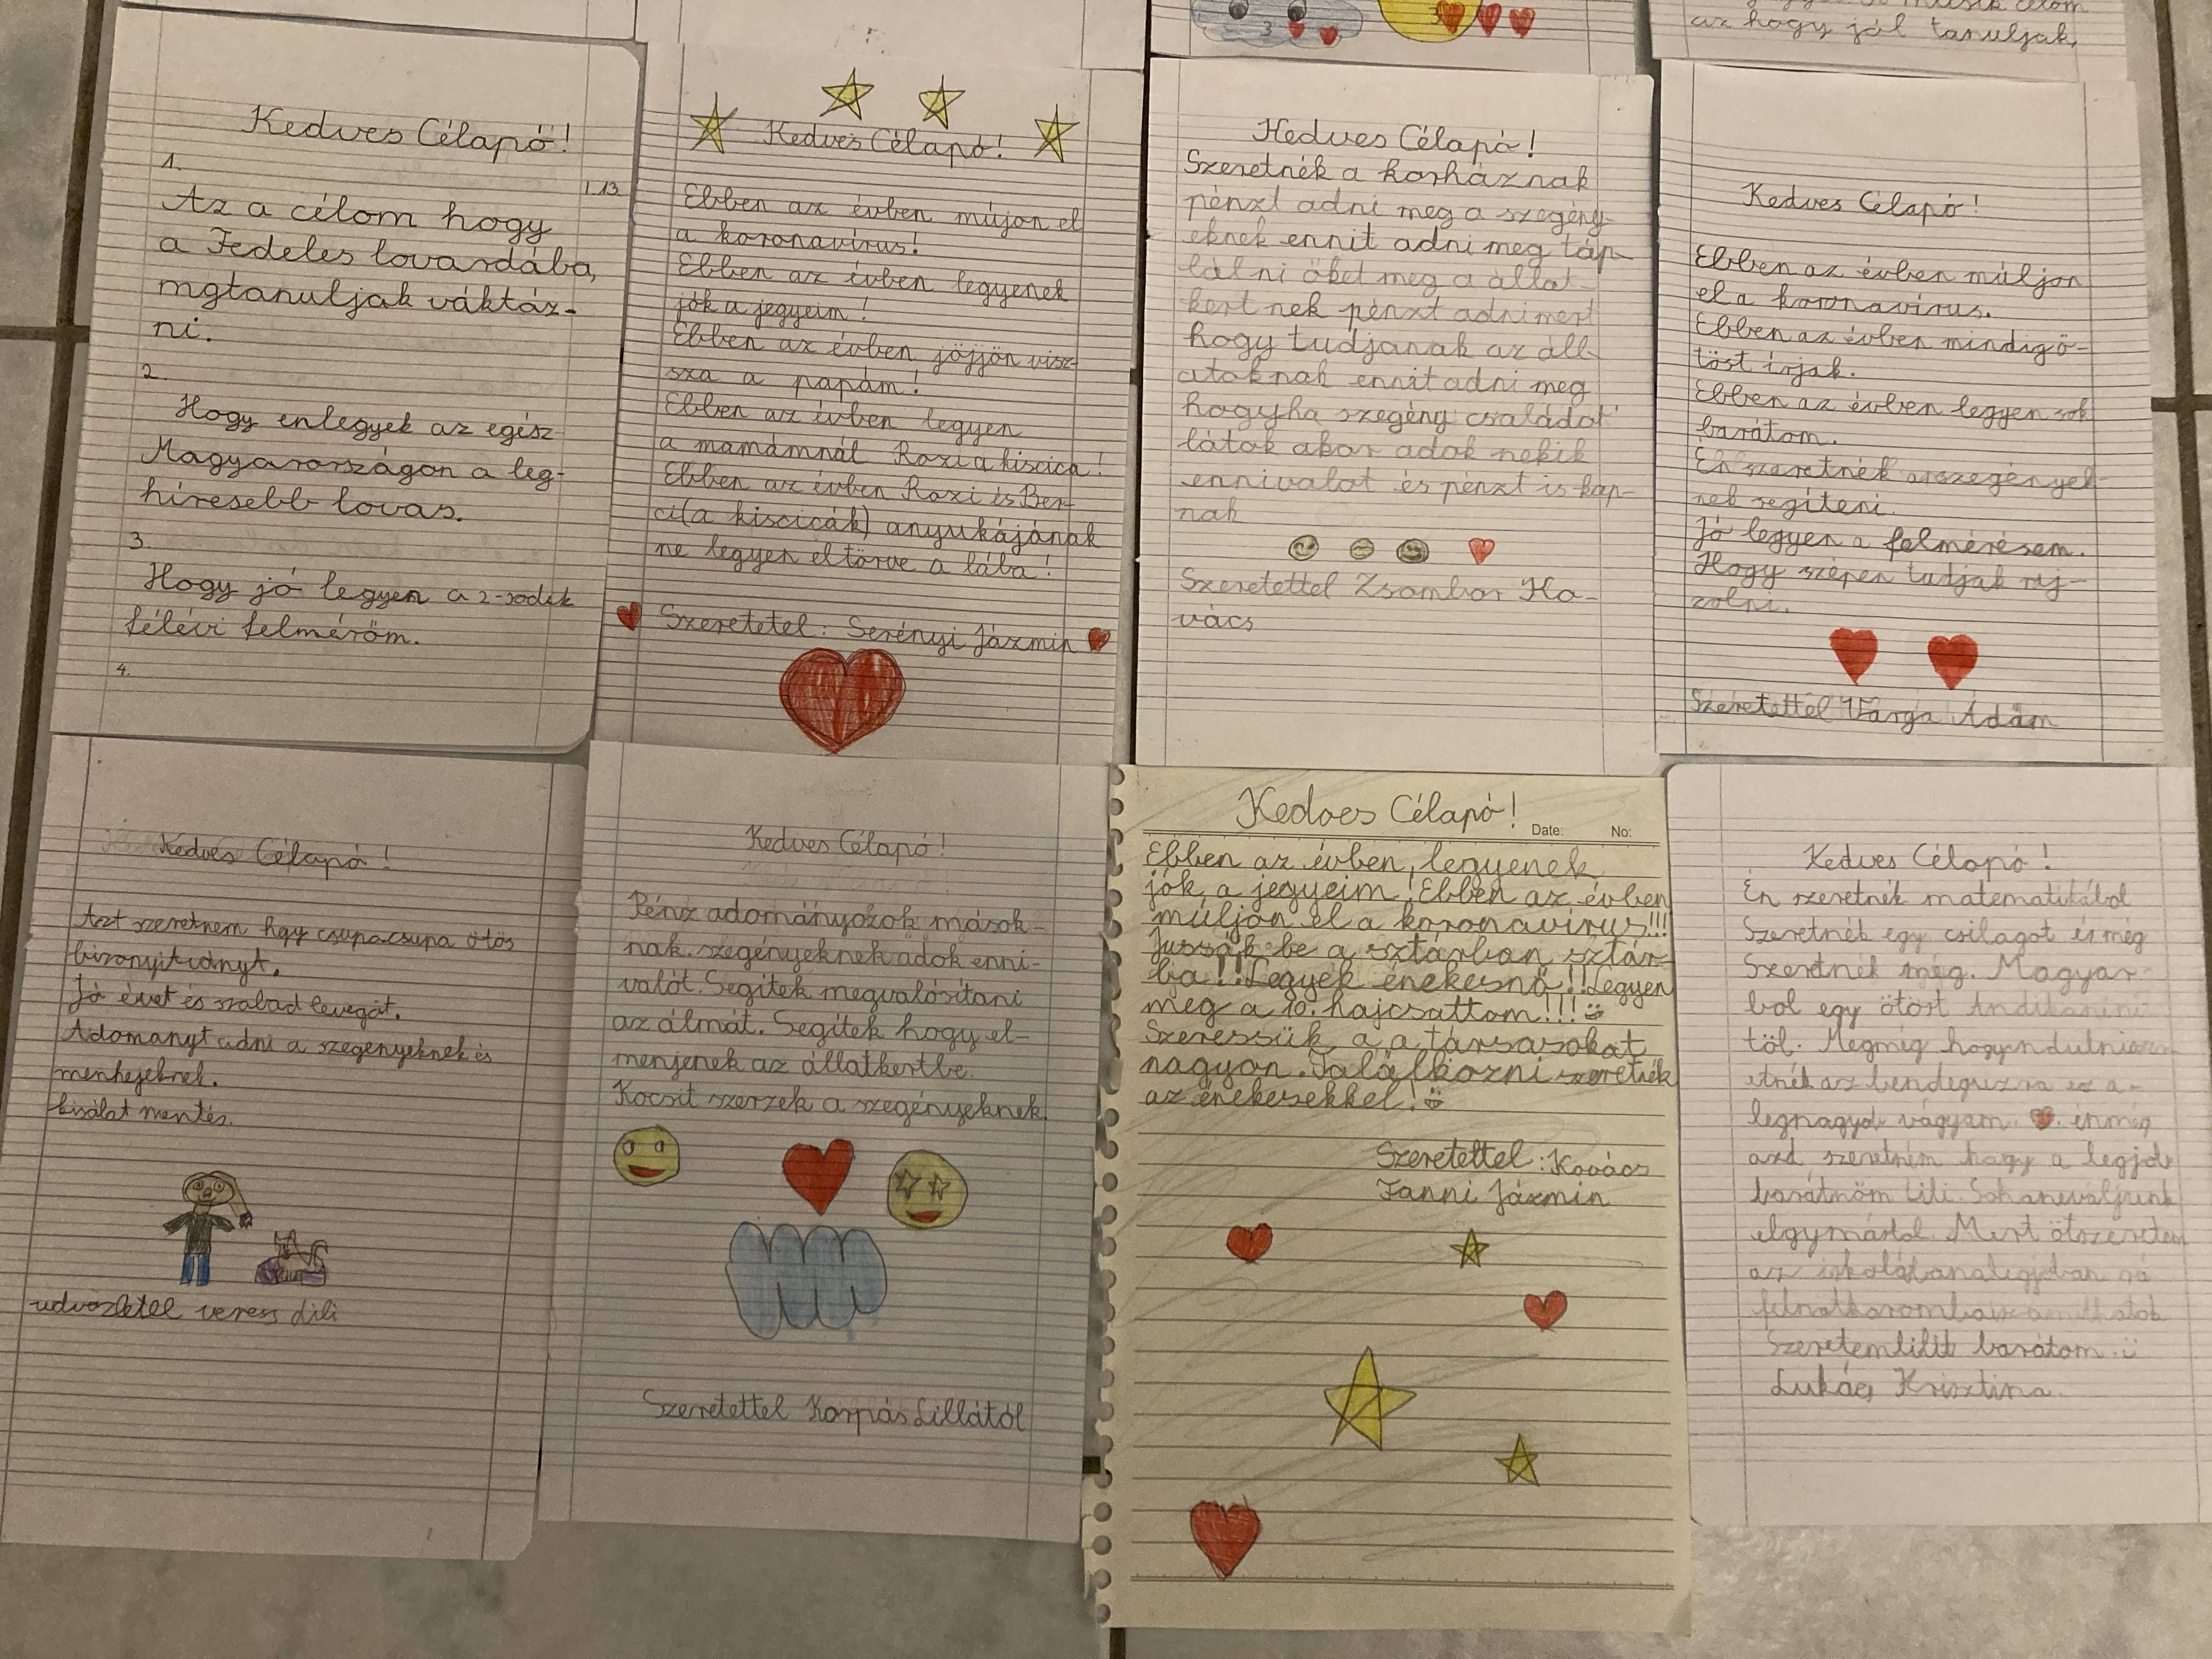 az hogy jól tanuljak,
Kedves Célapó!
1.
1.13
Az a célom hogy
a Fedeles lovardába,
mgtanuljak váktáz-
ni.
2.
Hogy enlegyek az egész
Magyarországon a leg-
híresebb lovas.
3.
Hogy jó legyen a 2-sodik
félévi felmérőm.
4.
Kedves Célapó!
Ebben az évben mújon el
a koronavírus!
Ebben az évben legyenek
jók a jegyeim!
Ebben az évben jöjjön visz-
sza a papám!
Ebben az évben legyen
a mamámnál Rozi a kiscica!
Ebben az évben Rozi és Ber-
ci(a kiscicák) anyukájának
ne legyen eltörve a lába!
Szeretetel: Serényi Jázmin
Kedves Célapó!
Szeretnék a korháznak
pénzt adni meg a szegény-
eknek ennit adni meg táp-
lálni őket meg a állat-
kert nek pénzt adni mert
hogy tudjanak az áll-
atoknak ennit adni meg
hogyha szegény családot
látok akor adok nekik
ennivalot és pénzt is kap-
nak
Szeretettel Zsombor Ko-
vács
Kedves Célapó!
Ebben az évben múljon
el a koronavírus.
Ebben az évben mindig ö-
töst írjak.
Ebben az évben legyen sok
barátom.
Én szeretnék a szegények-
nek segíteni.
Jó legyen a felmérésem.
Hogy szépen tudjak raj-
zolni.
Szeretettel Varga Ádám
Kedves Célapó!
Azt szeretnem hgy csupacsupa ötös
bizonyitványt.
Jó évet és szabad levegőt.
Adomanyt adni a szegenyeknek és
menhejeknek.
kisálat mentés.
udvozletel veress Lili
Kedves Célapó!
Pénz adományozok mások-
nak. szegényeknek adok enni-
valót. Segítek megvalósítani
az álmát. Segítek hogy el-
menjenek az állatkertbe.
Kocsit szerzek a szegényeknek.
Szeretettel Korpás Lillától
Kedves Célapó!
Date: No:
Ebben az évben, legyenek
jók, a jegyeim! Ebben az évben
múljon el a koronavírus!!!
Jussak be a sztárban sztár-
ba!! Legyek énekesnő!! Legyen
meg a 10. hajcsattom!!!
Szeressük a a társasokat
nagyon. Találkozni szeretnék
az énekesekkel!
Szeretettel: Kovács
Fanni Jázmin
Kedves Célapó!
Én szeretnék matematikábol
Szeretnék egy csilagot és még
Szeretnék még. Magyar-
bol egy ötöst
töl. Megmég
legnagyob vágyam. énmég
azd szeretném hogy a legjob
barátnöm Lili. Sohaneváljunk
elgymástol. Mert
Szeretemlilit barátom.
Lukács Krisztina.